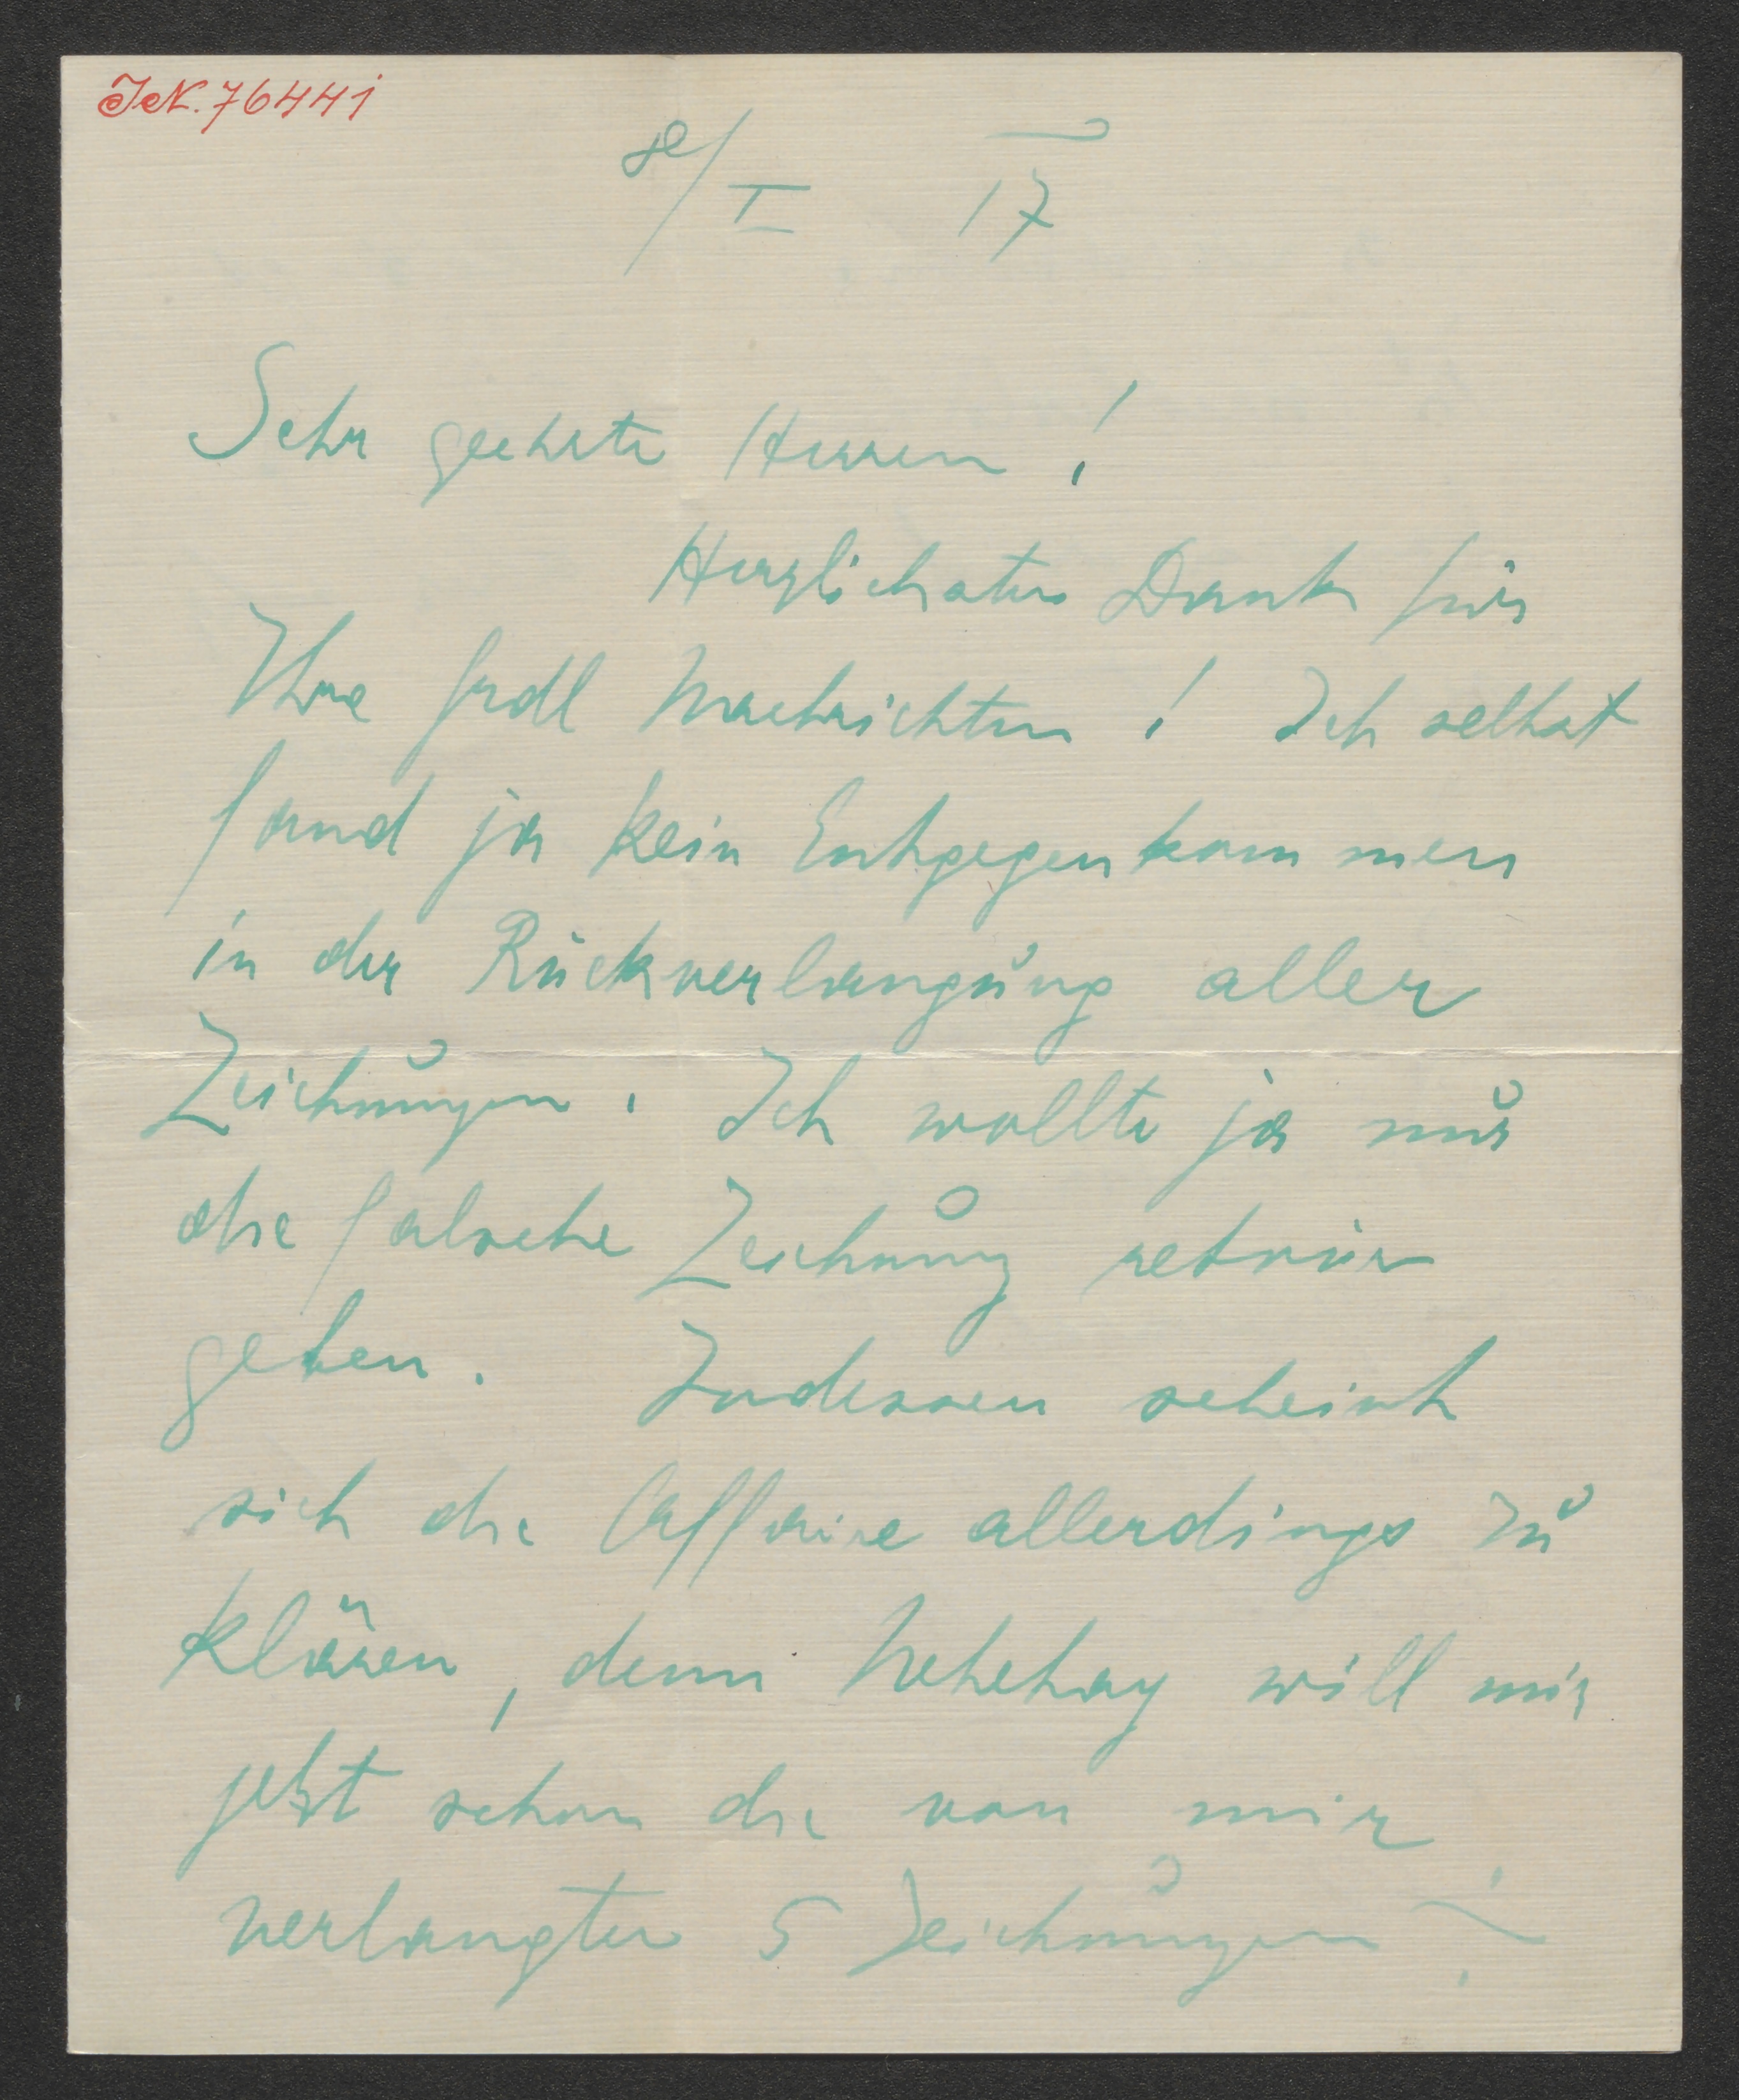 IN. 76441
8/I 17
Sehr geehrte Herren!
Herzlichsten Dank für
Ihre frdl Nachrichten! Ich selbst
fand ja kein Entgegenkommen
in der Rückverlangung aller
Zeichnungen. Ich wollte ja nur
die falsche Zeichnung retour
geben. Indessen scheint
sich die Affaire allerdings zu
klären, denn Nebehay will mir
jetzt schon die von mir
verlangten 5 Zeichnungen